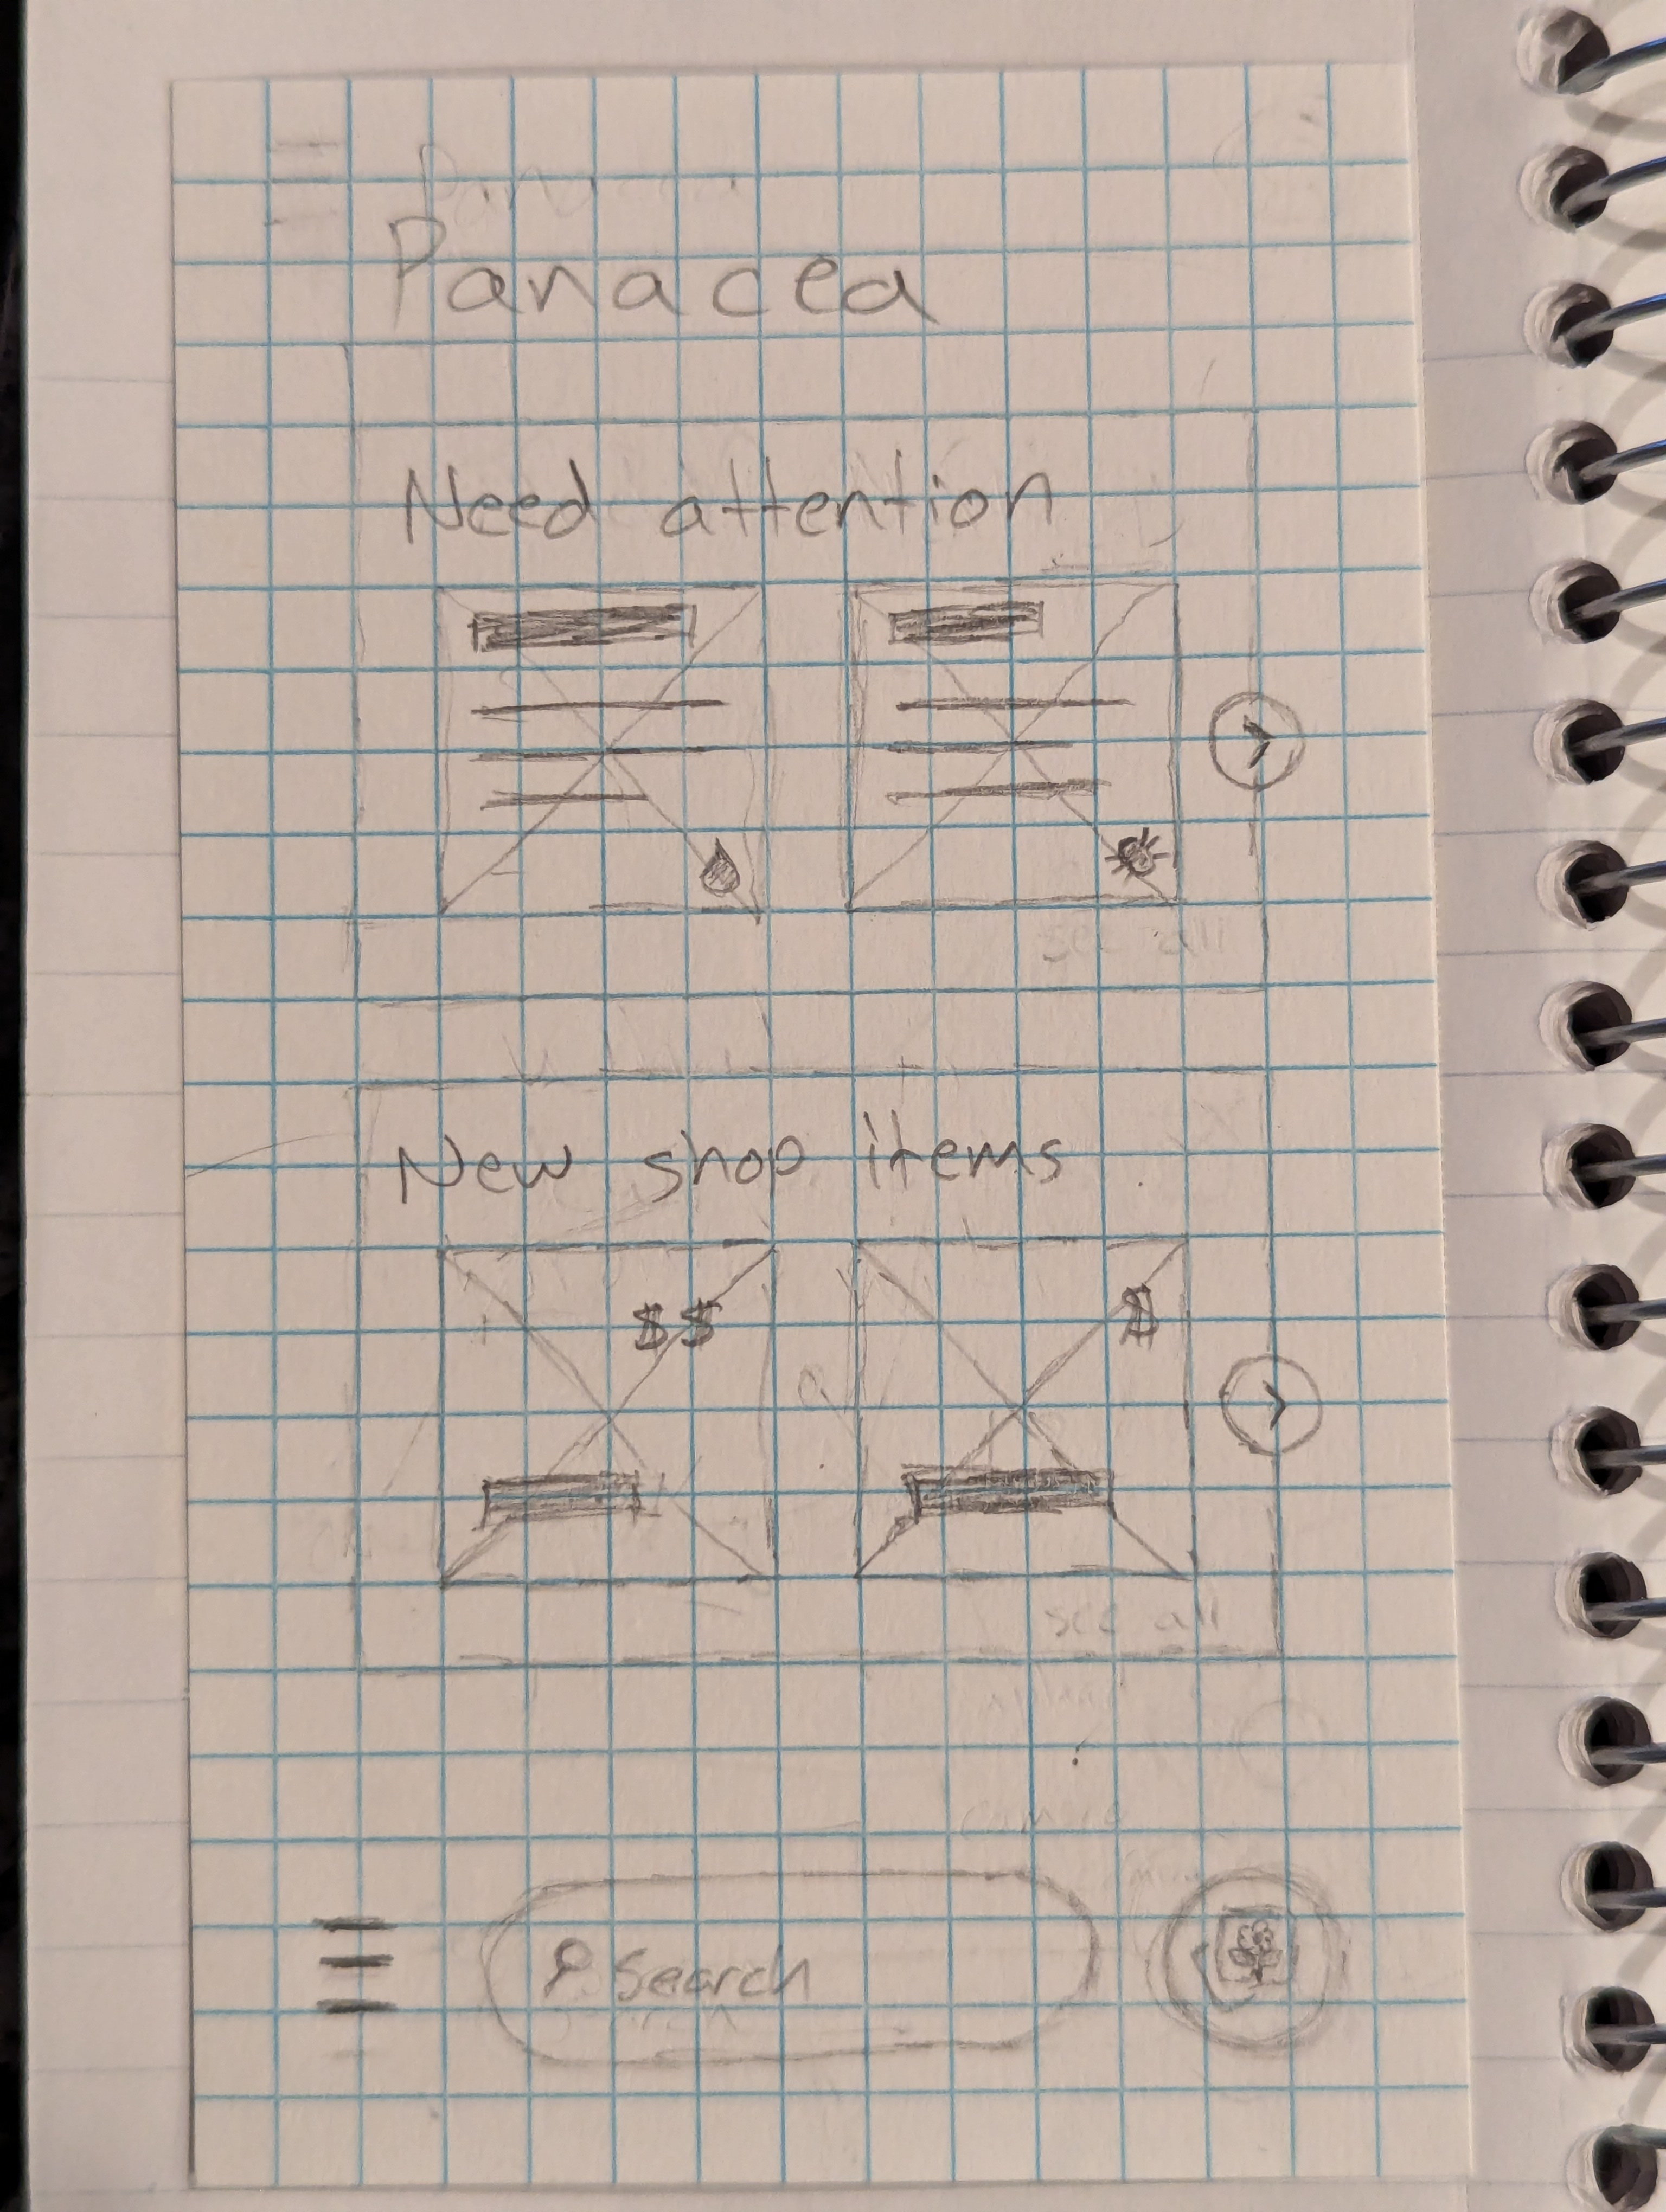 Panacea
Need attention
see all
New shop items
$$ $
see all
camera
Search